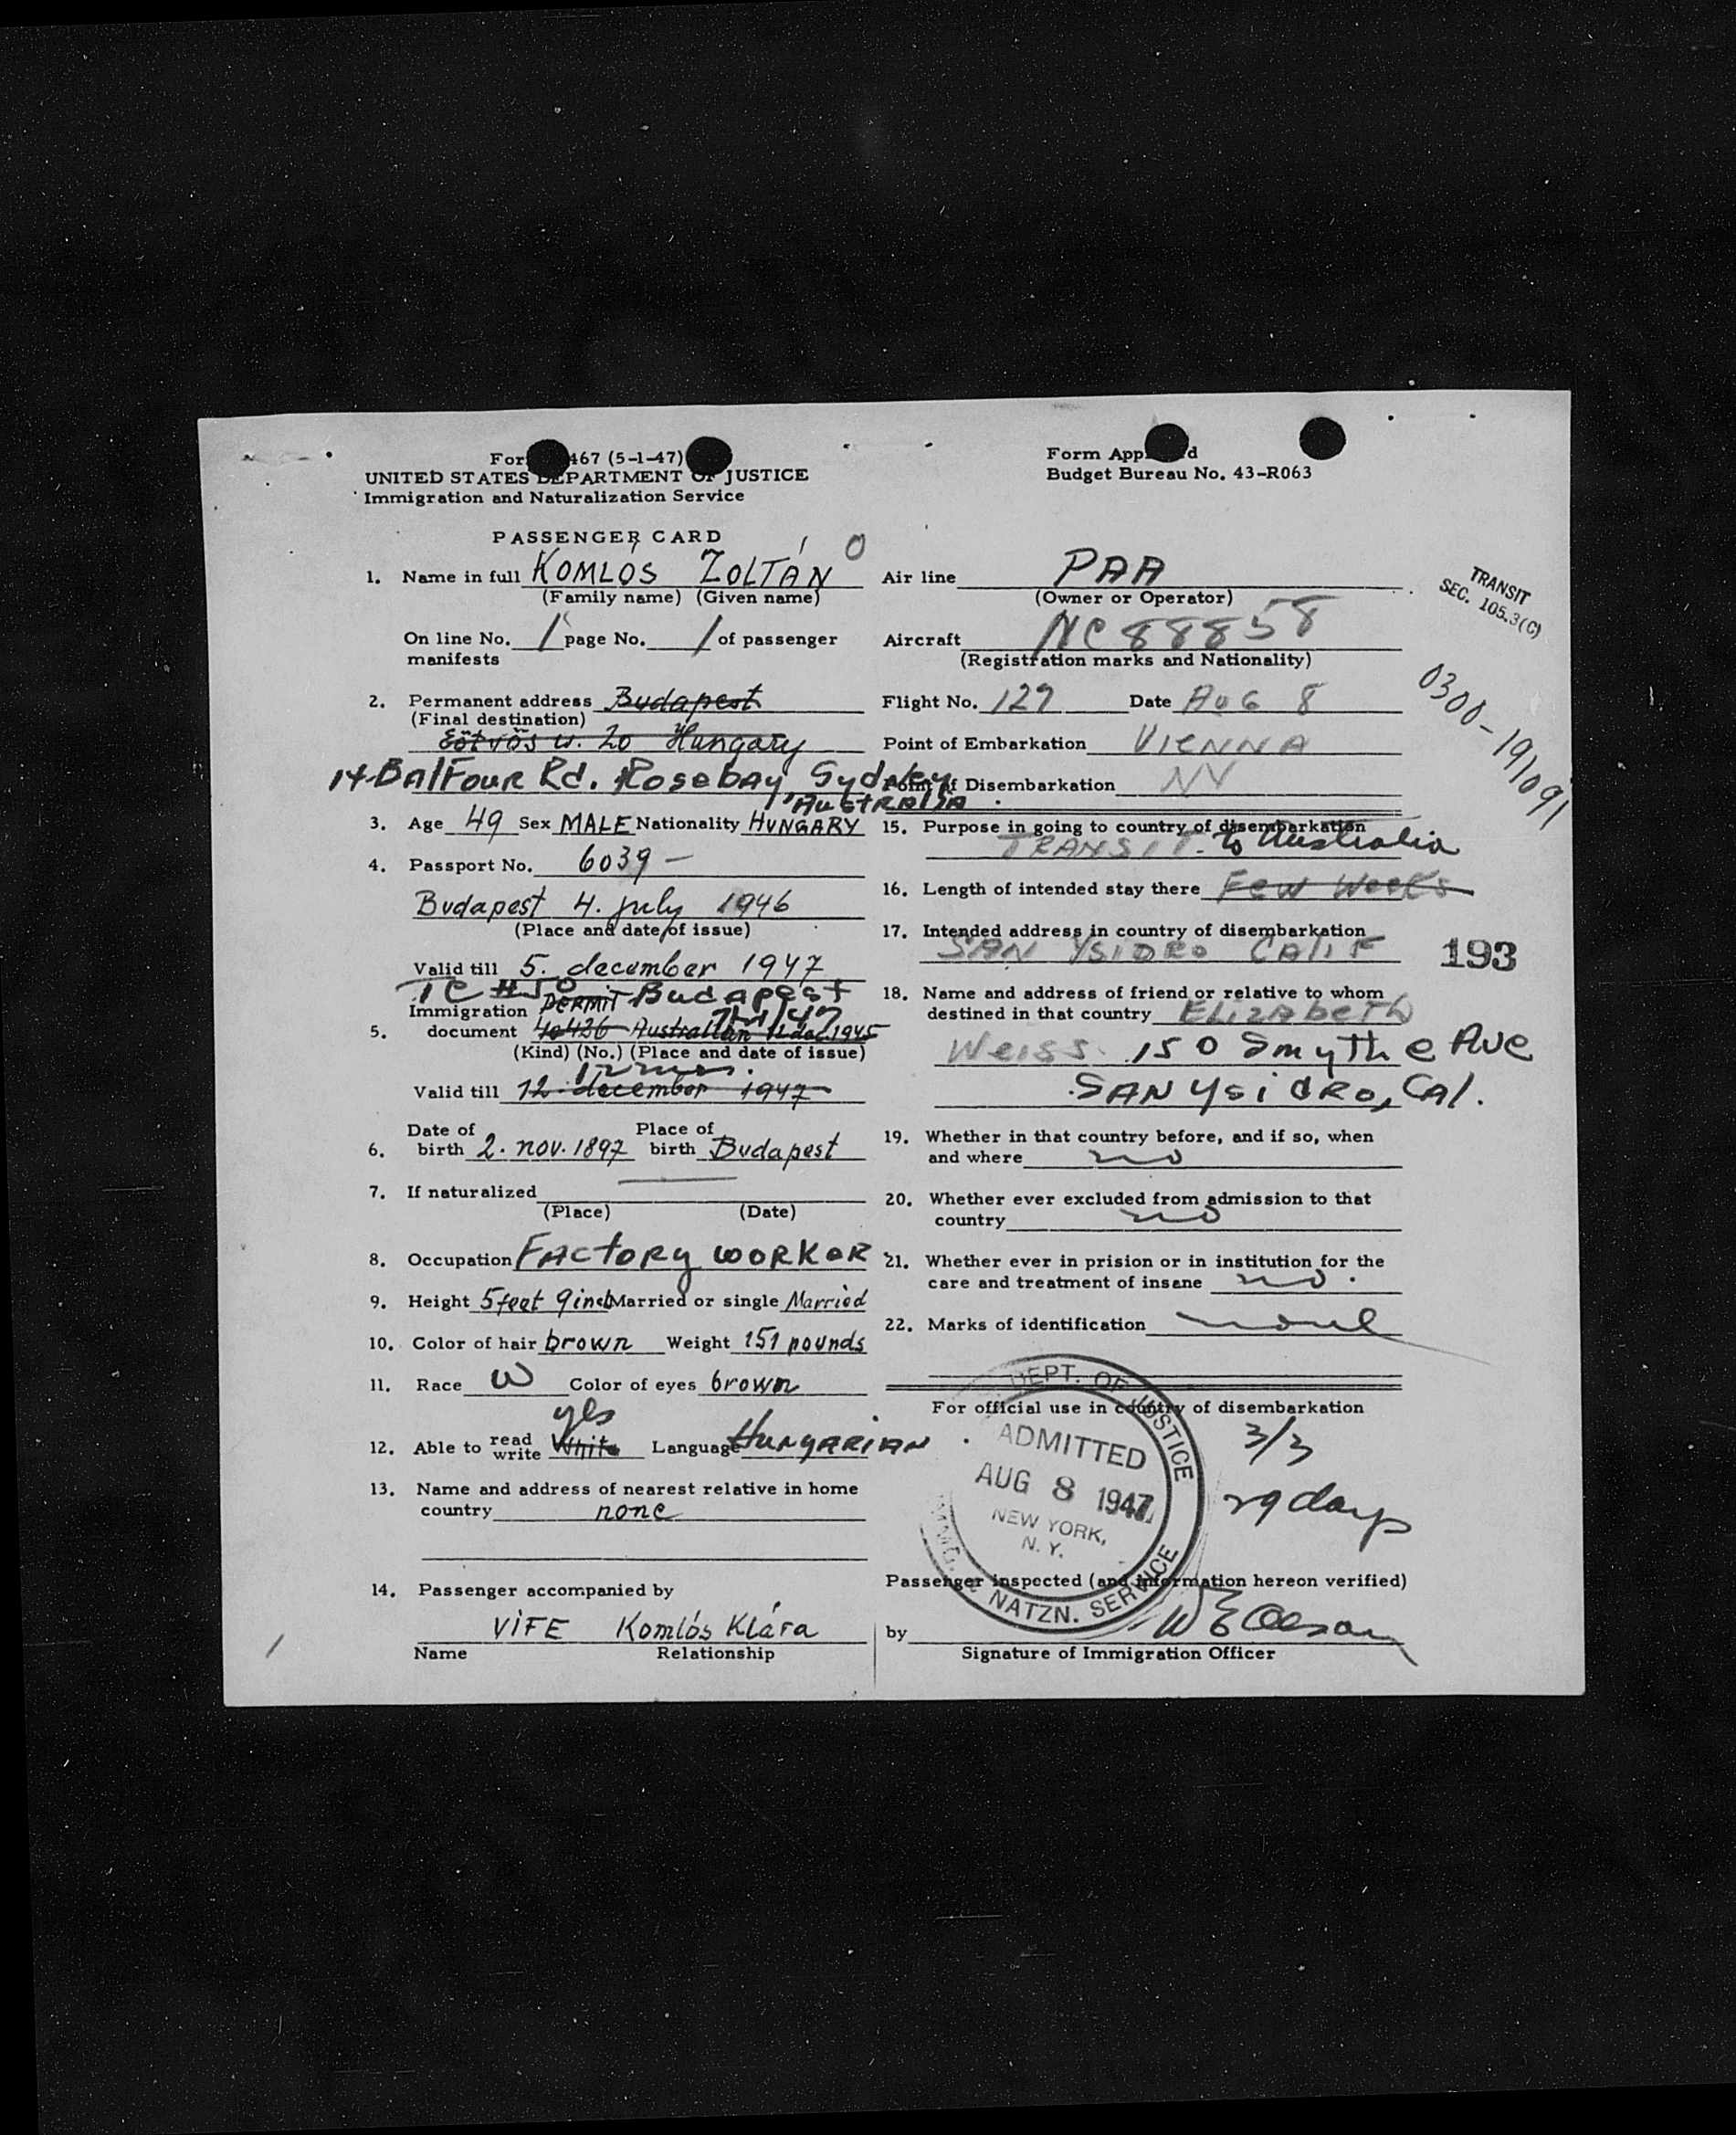 For 467 (5-1-47)
UNITED STATES DEPARTMENT OF JUSTICE
Immigration and Naturalization Service
PASSENGER CARD
1. Name in full KOMLÓS ZOLTÁN
(Family name) (Given name)
On line No. 1 page No. 1 of passenger
manifests
2. Permanent address Budapest
(Final destination)
Eötvös u. 20 Hungary
14 BalFour Rd. Rosebay, Sydney,
Australia
3. Age 49 Sex MALE Nationality HUNGARY
4. Passport No. 6039 —
Budapest 4. july 1946
(Place and date of issue)
Valid till 5. december 1947
TC #50 Budapest
Immigration PERMIT
5. document 40426 Australian 12 dec. 1945
(Kind) (No.) (Place and date of issue)
12 mos.
Valid till 12. december 1947
Date of Place of
6. birth 2. nov. 1897 birth Budapest
7. If naturalized
(Place) (Date)
8. Occupation Factory worker
9. Height 5 feet 9 inch Married or single Married
10. Color of hair brown Weight 151 pounds
11. Race W Color of eyes brown
yes
12. Able to read write White Language Hungarian
13. Name and address of nearest relative in home
country none
14. Passenger accompanied by
VIFE Komlós Klára
Name Relationship
Form App d
Budget Bureau No. 43-R063
O
Air line PAA
(Owner or Operator)
Aircraft NC 88858
(Registration marks and Nationality)
Flight No. 129 Date AUG 8
Point of Embarkation VIENNA
Point of Disembarkation NY
TRANSIT
SEC. 105.3(C)
0300-191091
15. Purpose in going to country of disembarkation
TRANSIT. to Australia
16. Length of intended stay there Few Weeks
17. Intended address in country of disembarkation
SAN YSIDRO CALIF
193
18. Name and address of friend or relative to whom
destined in that country Elizabeth
Weiss. 150 Smythe Ave
San Ysidro, Cal.
19. Whether in that country before, and if so, when
and where no
20. Whether ever excluded from admission to that
country no
21. Whether ever in prision or in institution for the
care and treatment of insane no.
22. Marks of identification none
For official use in country of disembarkation
DEPT. OF JUSTICE
ADMITTED
AUG 8 1947
NEW YORK,
N. Y.
IMMG. & NATZN. SERVICE
3/3
29 days
Passenger inspected (and information hereon verified)
by W E Olson
Signature of Immigration Officer